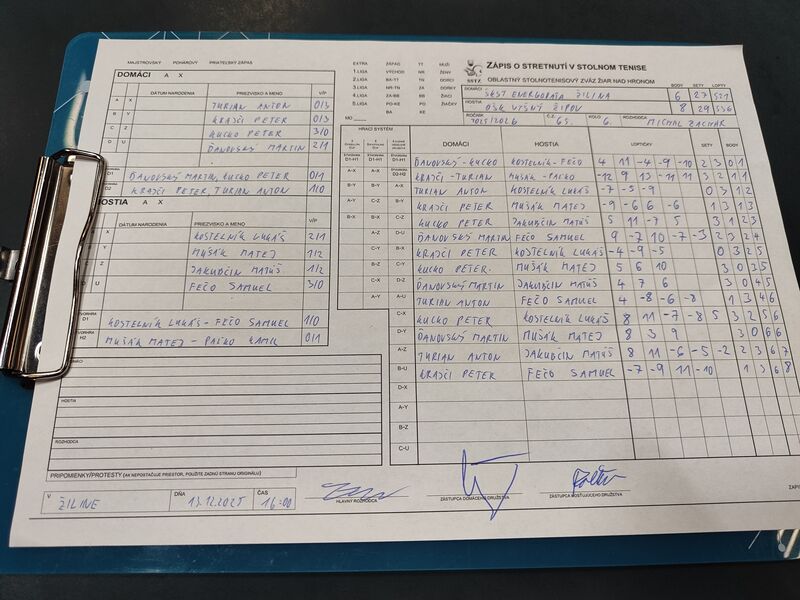 MAJSTROVSKÝ POHÁROVÝ PRIATEĽSKÝ ZÁPAS
DOMÁCI A X
DÁTUM NARODENIA PRIEZVISKO A MENO V/P
A X TURIAN ANTON 0/3
B Y KRAJČI PETER 0/3
C Z KUCKO PETER 3/0
D U ĎANOVSKÝ MARTIN 2/1
D1 ĎANOVSKÝ MARTIN, KUCKO PETER 0/1
D2 KRAJČI PETER, TURIAN ANTON 1/0
HOSTIA A X
DÁTUM NARODENIA PRIEZVISKO A MENO V/P
KOSTELNÍK LUKÁŠ 2/1
Y MUŠÁK MATEJ 1/2
Z JAKUBČIN MATÚŠ 1/2
D U FEČO SAMUEL 3/0
ŠTVORHRA D1 KOSTELNÍK LUKÁŠ - FEČO SAMUEL 1/0
ŠTVORHRA H2 MUŠÁK MATEJ - PAĽKO KAMIL 0/1
DOMÁCI
HOSTIA
ROZHODCA
PRIPOMIENKY/PROTESTY (AK NEPOSTAČUJE PRIESTOR, POUŽITE ZADNÚ STRANU ORIGINÁLU)
V ŽILINE DŇA 13.12.2025 ČAS 16:00
EXTRA ZÁPAS TT MUŽI
1.LIGA VÝCHOD NR ŽENY
2.LIGA BA-TT TN DORCI
3.LIGA NR-TN ZA DORKY
4.LIGA ZA-BB BB ŽIACI
5.LIGA PO-KE PO ŽIAČKY
BA KE
MO
SSTZ
ZÁPIS O STRETNUTÍ V STOLNOM TENISE
OBLASTNÝ STOLNOTENISOVÝ ZVÄZ ŽIAR NAD HRONOM
BODY SETY LOPTY
DOMÁCI SKST ENERGODATA ŽILINA 6 27 521
HOSTIA OŠK VYŠNÝ ŽIPOV 8 29 536
ROČNÍK 2025/2026 Č.Z. 65. KOLO 6. ROZHODCA MICHAL ZACHAR
HRACÍ SYSTÉM DOMÁCI HOSTIA LOPTIČKY SETY BODY
ĎANOVSKÝ - KUCKO KOSTELNÍK - FEČO 4 11 -4 -9 -10 2 3 0 1
KRAJČI - TURIAN MUŠÁK - PAĽKO -12 9 13 -11 11 3 2 1 1
TURIAN ANTON KOSTELNÍK LUKÁŠ -7 -5 -9 0 3 1 2
KRAJČI PETER MUŠÁK MATEJ -9 -6 6 -6 1 3 1 3
KUCKO PETER JAKUBČIN MATÚŠ 5 11 -7 5 3 1 2 3
ĎANOVSKÝ MARTIN FEČO SAMUEL 9 -7 10 -7 -3 2 3 2 4
KRAJČI PETER KOSTELNÍK LUKÁŠ -4 -9 -5 0 3 2 5
KUCKO PETER MUŠÁK MATEJ 5 6 10 3 0 3 5
ĎANOVSKÝ MARTIN JAKUBČIN MATÚŠ 4 7 6 3 0 4 5
TURIAN ANTON FEČO SAMUEL 4 -8 -6 -8 1 3 4 6
C-X KUCKO PETER KOSTELNÍK LUKÁŠ 8 11 -7 -8 5 3 2 5 6
D-Y ĎANOVSKÝ MARTIN MUŠÁK MATEJ 8 3 9 3 0 6 6
A-Z TURIAN ANTON JAKUBČIN MATÚŠ 8 11 -6 -5 -2 2 3 6 7
B-U KRAJČI PETER FEČO SAMUEL -7 -9 11 -10 1 3 6 8
D-X
A-Y
B-Z
C-U
HLAVNÝ ROZHODCA
ZÁSTUPCA DOMÁCEHO DRUŽSTVA
ZÁSTUPCA HOSŤUJÚCEHO DRUŽSTVA